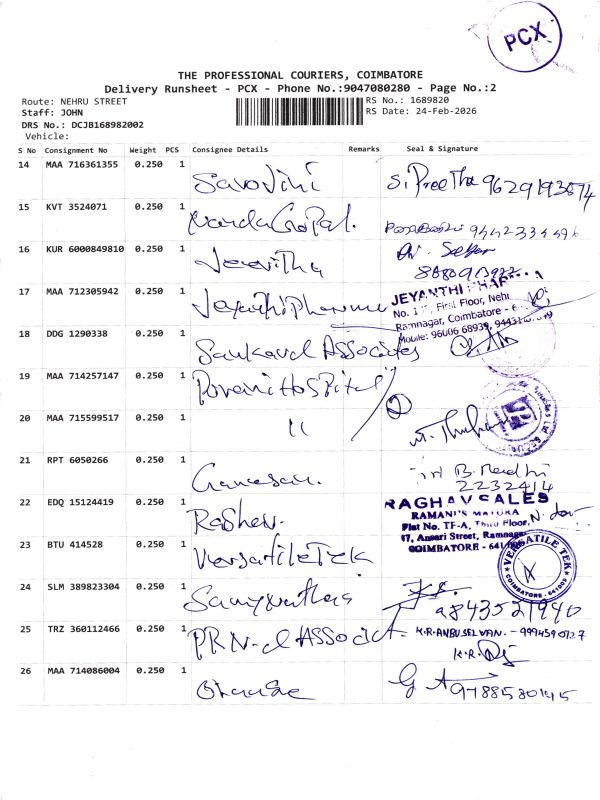 PCX
THE PROFESSIONAL COURIERS, COIMBATORE
Delivery Runsheet - PCX - Phone No.:9047080280 - Page No.:2
Route: NEHRU STREET
RS No.: 1689820
Staff: JOHN
RS Date: 24-Feb-2026
DRS No.: DCJB168982002
Vehicle:
S No Consignment No Weight PCS Consignee Details Remarks Seal & Signature
14 MAA 716361355 0.250 1 Sarojini S. Preetha
15 KVT 3524071 0.250 1 NandaGoPal.
16 KUR 6000849810 0.250 1 Jeevitha
17 MAA 712305942 0.250 1 Jeyanthi Pharma
JEYANTHI PHAR
First Floor, Nehr
Ramnagar, Coimbatore - 6
Mobile: 96006 68939,
18 DDG 1290338 0.250 1 Sankaral Associates
19 MAA 714257147 0.250 1 Hospital
20 MAA 715599517 0.250 1 "
21 RPT 6050266 0.250 1 Ganesan.
2232414
22 EDQ 15124419 0.250 1
RAGHAV SALES
RAMANI'S MAYURA
Flat No. TF-A, Third Floor,
17, Ansari Street, Ramnagar
COIMBATORE - 641
23 BTU 414528 0.250 1 Versatile Tek
VERSATILE TEK
COIMBATORE - 641009
24 SLM 389823304 0.250 1
9843521940
25 TRZ 360112466 0.250 1 PRN. d Associat K.R. ANBUSELVAN. - 9994590127
K.R.
26 MAA 714086004 0.250 1